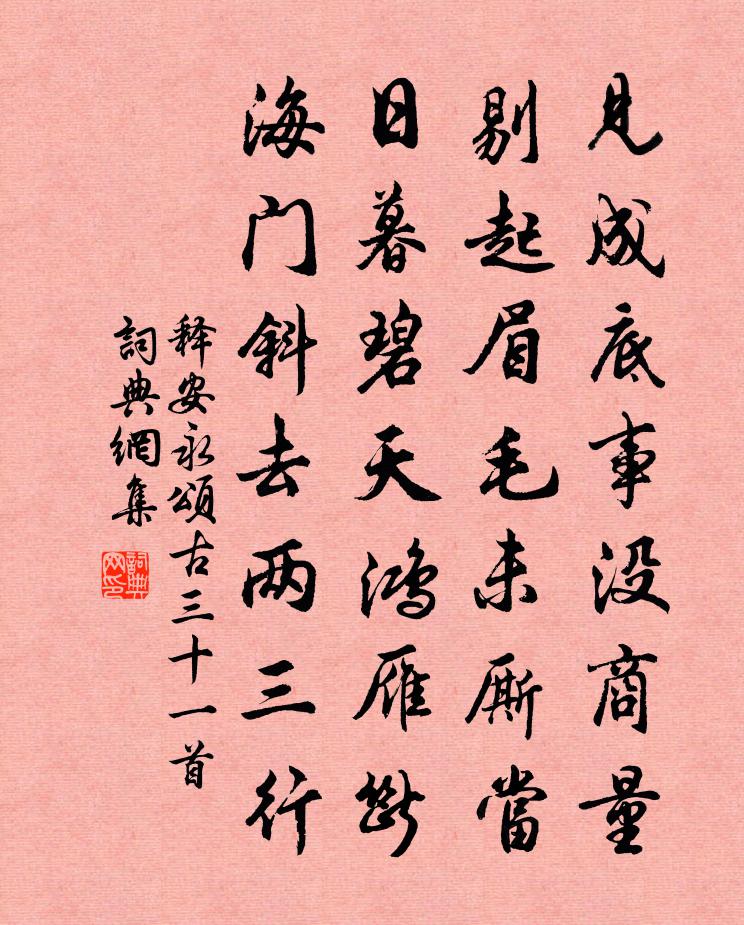 见成底事没商量
剔起眉毛未厮當
日暮碧天鸿雁断
海门斜去两三行
释安永頌古三十一首
詞典網集
詞典网印